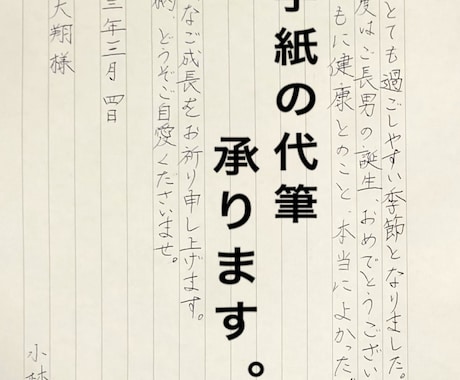 とても過ごしやすい季節となりました。
度はご長男の誕生、おめでとうござい
もに健康とのこと、本当によかった
手紙の代筆
承ります。
なご成長をお祈り申し上げます。
柄、どうぞご自愛くださいませ。
三年三月四日
大翔様
小林